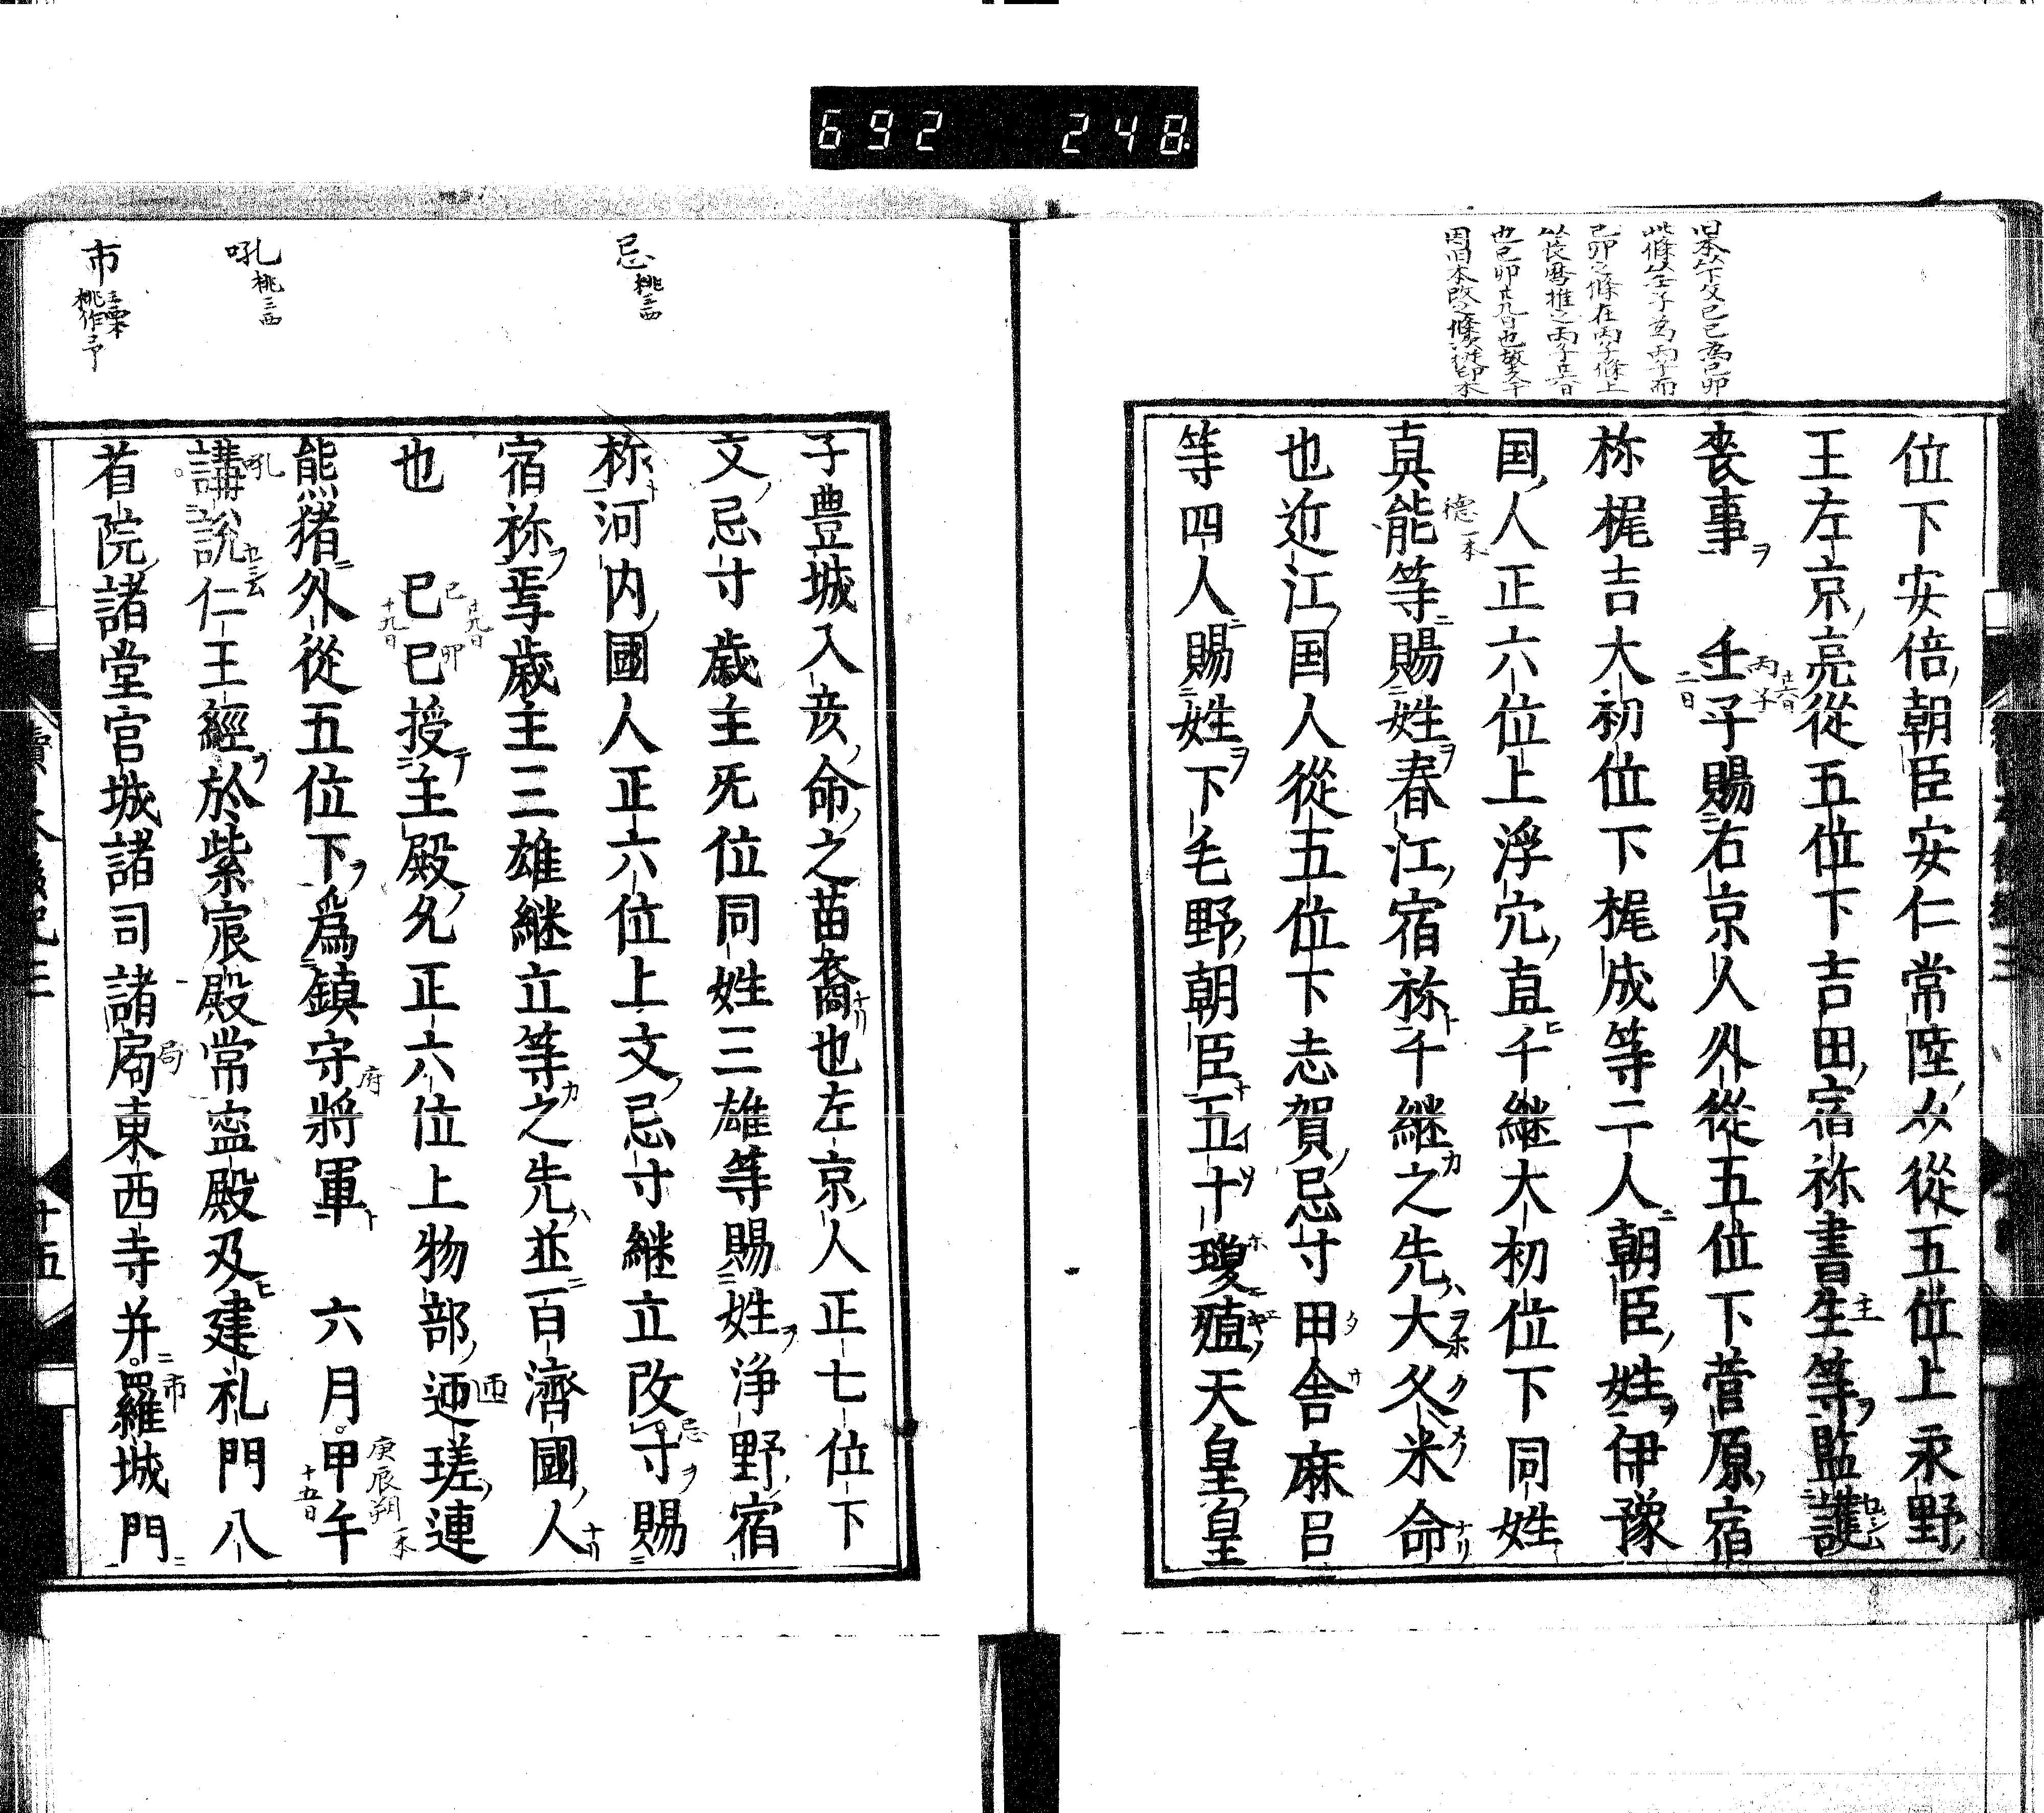 692 248
旧本竿下文己巳為己卯
此條壬子為丙子而
己卯之條在丙子條上
以長暦推之丙子廿六日
也己卯廿九日也
因旧本改之
位下安倍朝臣安仁常陸介從五位上永野
王左京亮從五位下吉田宿祢書生等監護
喪事 壬子賜右京人外從五位下菅原宿
祢梶吉大初位下梶成等二人朝臣姓伊豫
国人正六位上浮穴直千継大初位下同姓
真能等賜姓春江宿祢千継之先大久米命
也近江国人從五位下志賀忌寸田舎麻呂
等四人賜姓下毛野朝臣五十瓊殖天皇皇
丙子
廿六日
二日
主
德一本
忌 桃三西
吼 桃三西
市 桃作予
子豊城入彦命之苗裔也左京人正七位下
文忌寸歳主无位同姓三雄等賜姓浄野宿
祢河内國人正六位上文忌寸継立改寸賜
宿祢焉歳主三雄継立等之先並百濟國人
也 己巳授主殿允正六位上物部迺瑳連
熊猪外從五位下為鎮守將軍 六月甲午
講説仁王經於紫宸殿常寧殿及建礼門八
省院諸堂官城諸司諸局東西寺并羅城門
忌
己卯
廿九日
十九日
匝
府
庚辰朔一本
十五日
吼
局
市
十五